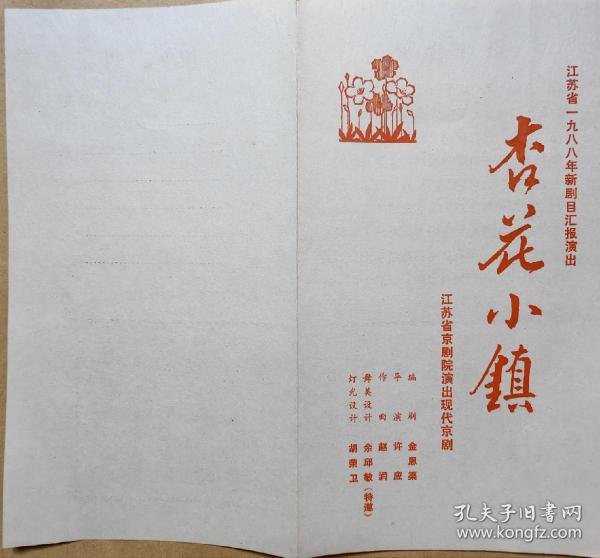 江苏省一九八八年新剧目汇报演出
杏花小鎮
江苏省京剧院演出现代京剧
编剧 金恩渠
导演 许应
作曲 赵润
舞美设计 余邱敏(特邀)
灯光设计 胡荣卫
孔夫子旧书网
www.kongfz.com